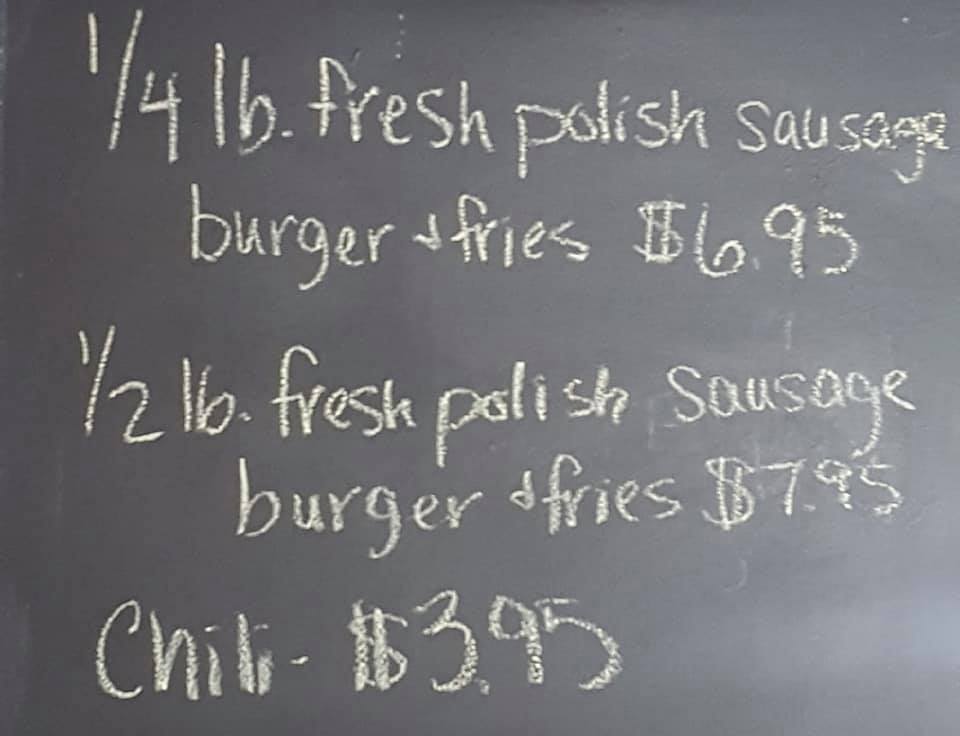 1/4 lb. fresh polish sausage
burger & fries $6.95
1/2 lb. fresh polish sausage
burger & fries $7.95
Chili - $3.95